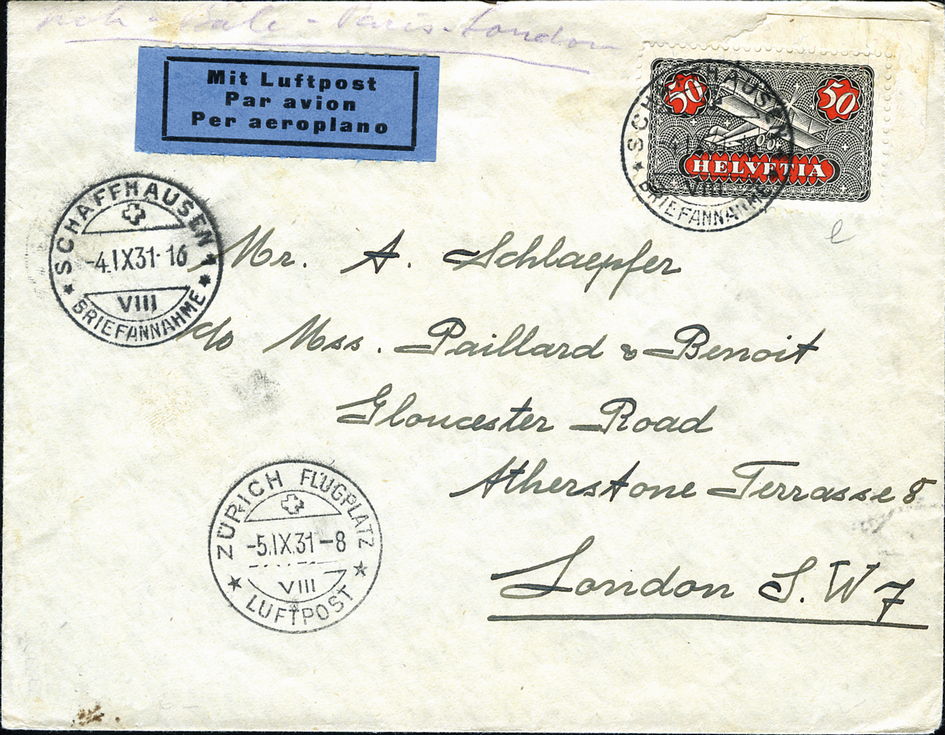 Bâle - Paris - London
Mit Luftpost
Par avion
Per aeroplano
50 50
HELVETIA
SCHAFFHAUSEN 1
VIII
BRIEFANNAHME
SCHAFFHAUSEN 1
-4.IX.31-16
VIII
BRIEFANNAHME
e
Mr. A. Schlaepfer
c/o Mss. Paillard & Benoit
Gloucester Road
Atherstone Terrasse 8
London S.W 7
ZÜRICH FLUGPLATZ
-5.IX.31-8
VIII
LUFTPOST